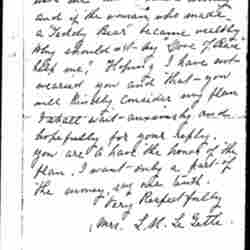 and if the woman who made
a Teddy Bear became wealthy
why should not my
help me? Hoping I have not
wearied you and that you
will kindly consider my plan
I shall wait anxiously and
hopefully for your reply.
you are to have the honor of the
plan. I want only a part of
the money,
Very Respectfully
Mrs. L. M. Le